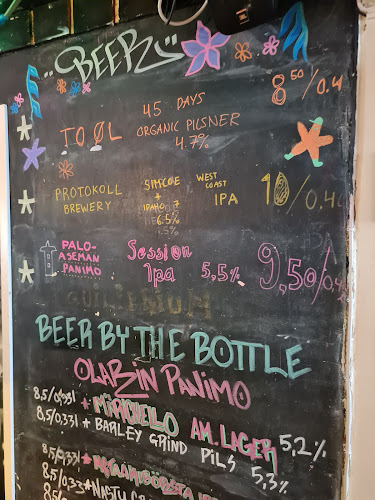 "BEER"
TO ØL 45 DAYS ORGANIC PILSNER 4.7% 8⁵⁰/0.4
PROTOKOLL BREWERY SIMCOE + IDAHO 7 6.5% WEST COAST IPA 10/0.4
PALO-ASEMAN PANIMO Session Ipa 5,5% 9,50/0.4
BEER BY THE BOTTLE
OLARIN PANIMO
8,5/0,33l + MIRCHELLO AM. LAGER 5,2%
8,5/0,33l + BARLEY GRIND PILS 5,3%
8,5/0,33l +
8,5/0,33
8,5/0